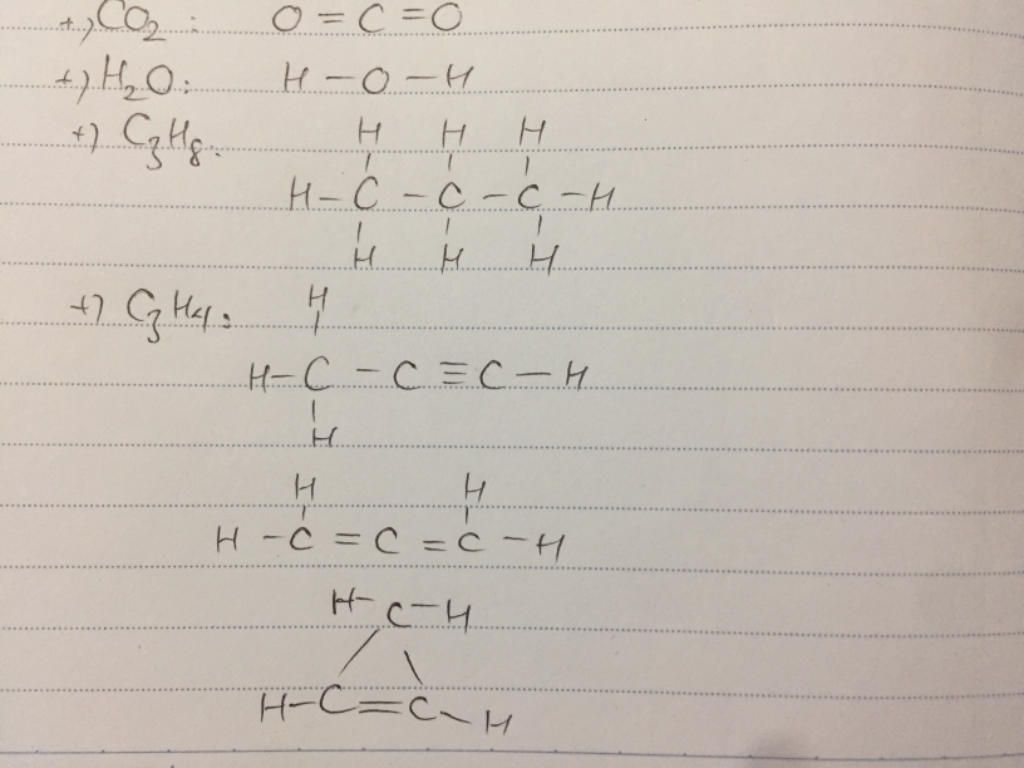 +) CO₂ : O = C = O
+) H₂O : H – O – H
+) C₃H₈ :
H H H
| | |
H – C – C – C – H
| | |
H H H
+) C₃H₄ :
H
|
H – C – C ≡ C – H
|
H
H H
| |
H – C = C = C – H
H – C – H
/ \
H – C = C – H